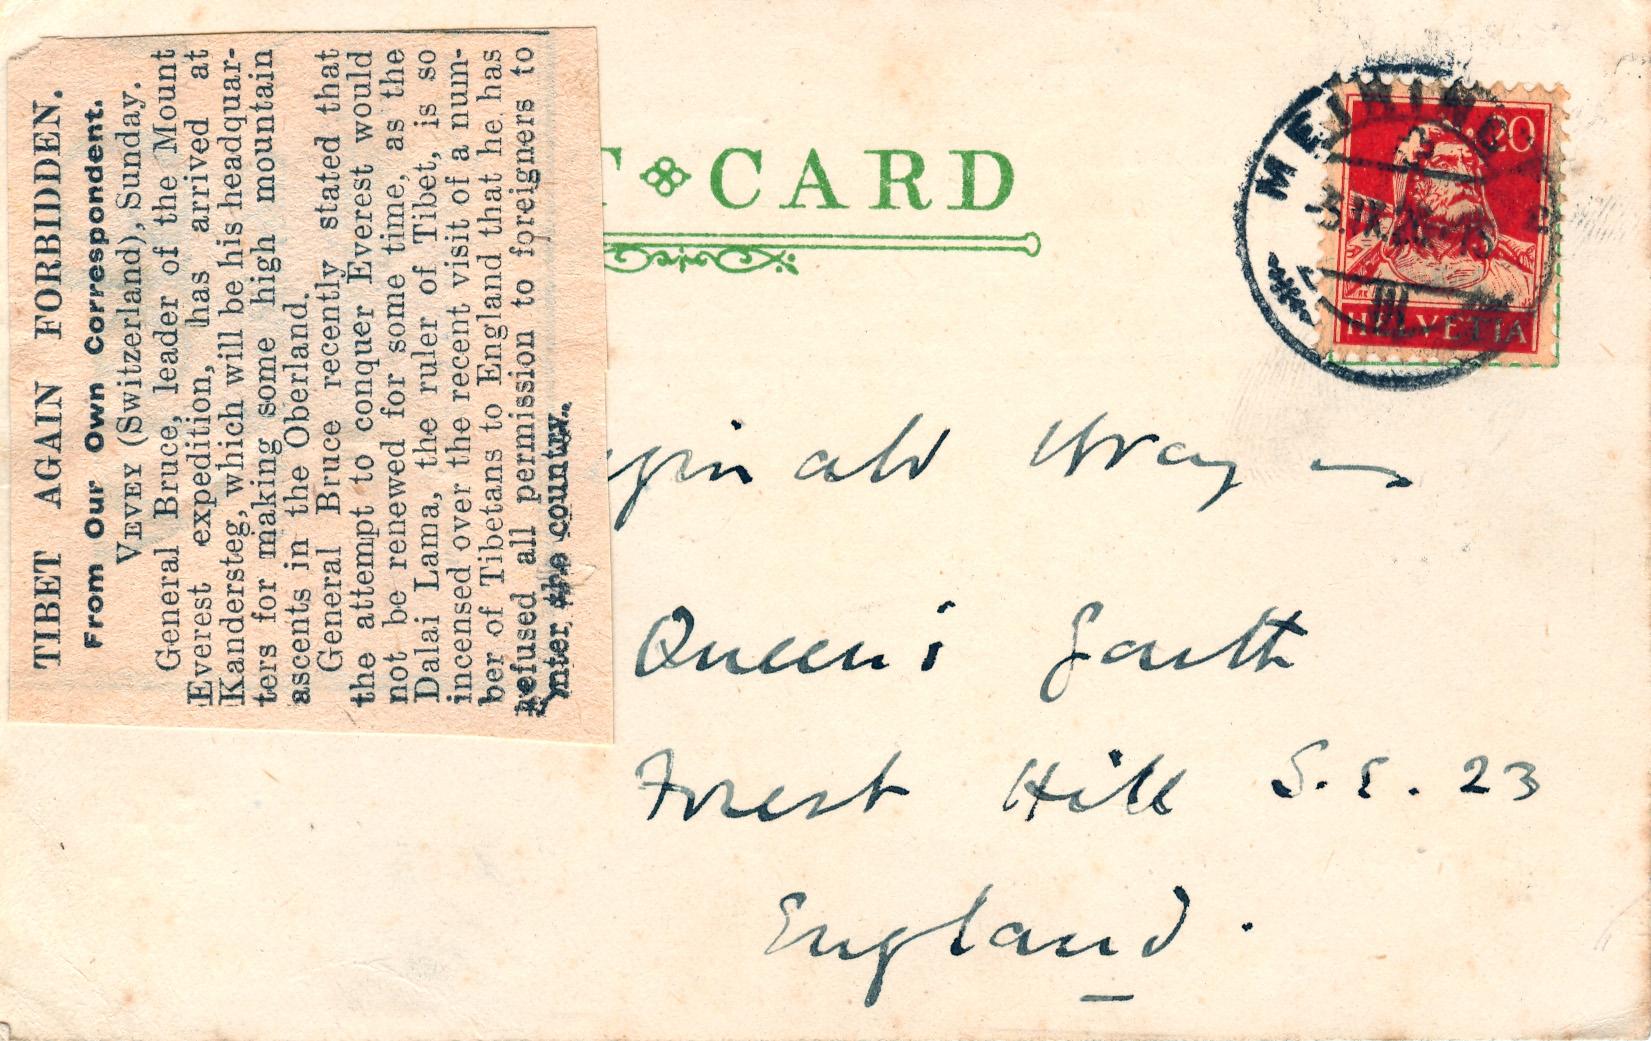 TIBET AGAIN FORBIDDEN.
From Our Own Correspondent.
VEVEY (Switzerland), Sunday.
General Bruce, leader of the Mount
Everest expedition, has arrived at
Kandersteg, which will be his headquar-
ters for making some high mountain
ascents in the Oberland.
General Bruce recently stated that
the attempt to conquer Everest would
not be renewed for some time, as the
Dalai Lama, the ruler of Tibet, is so
incensed over the recent visit of a num-
ber of Tibetans to England that he has
refused all permission to foreigners to
enter the country.
CARD
20
HELVETIA
ginald Wray
Queen's Garth
Forest Hill S.E. 23
England.